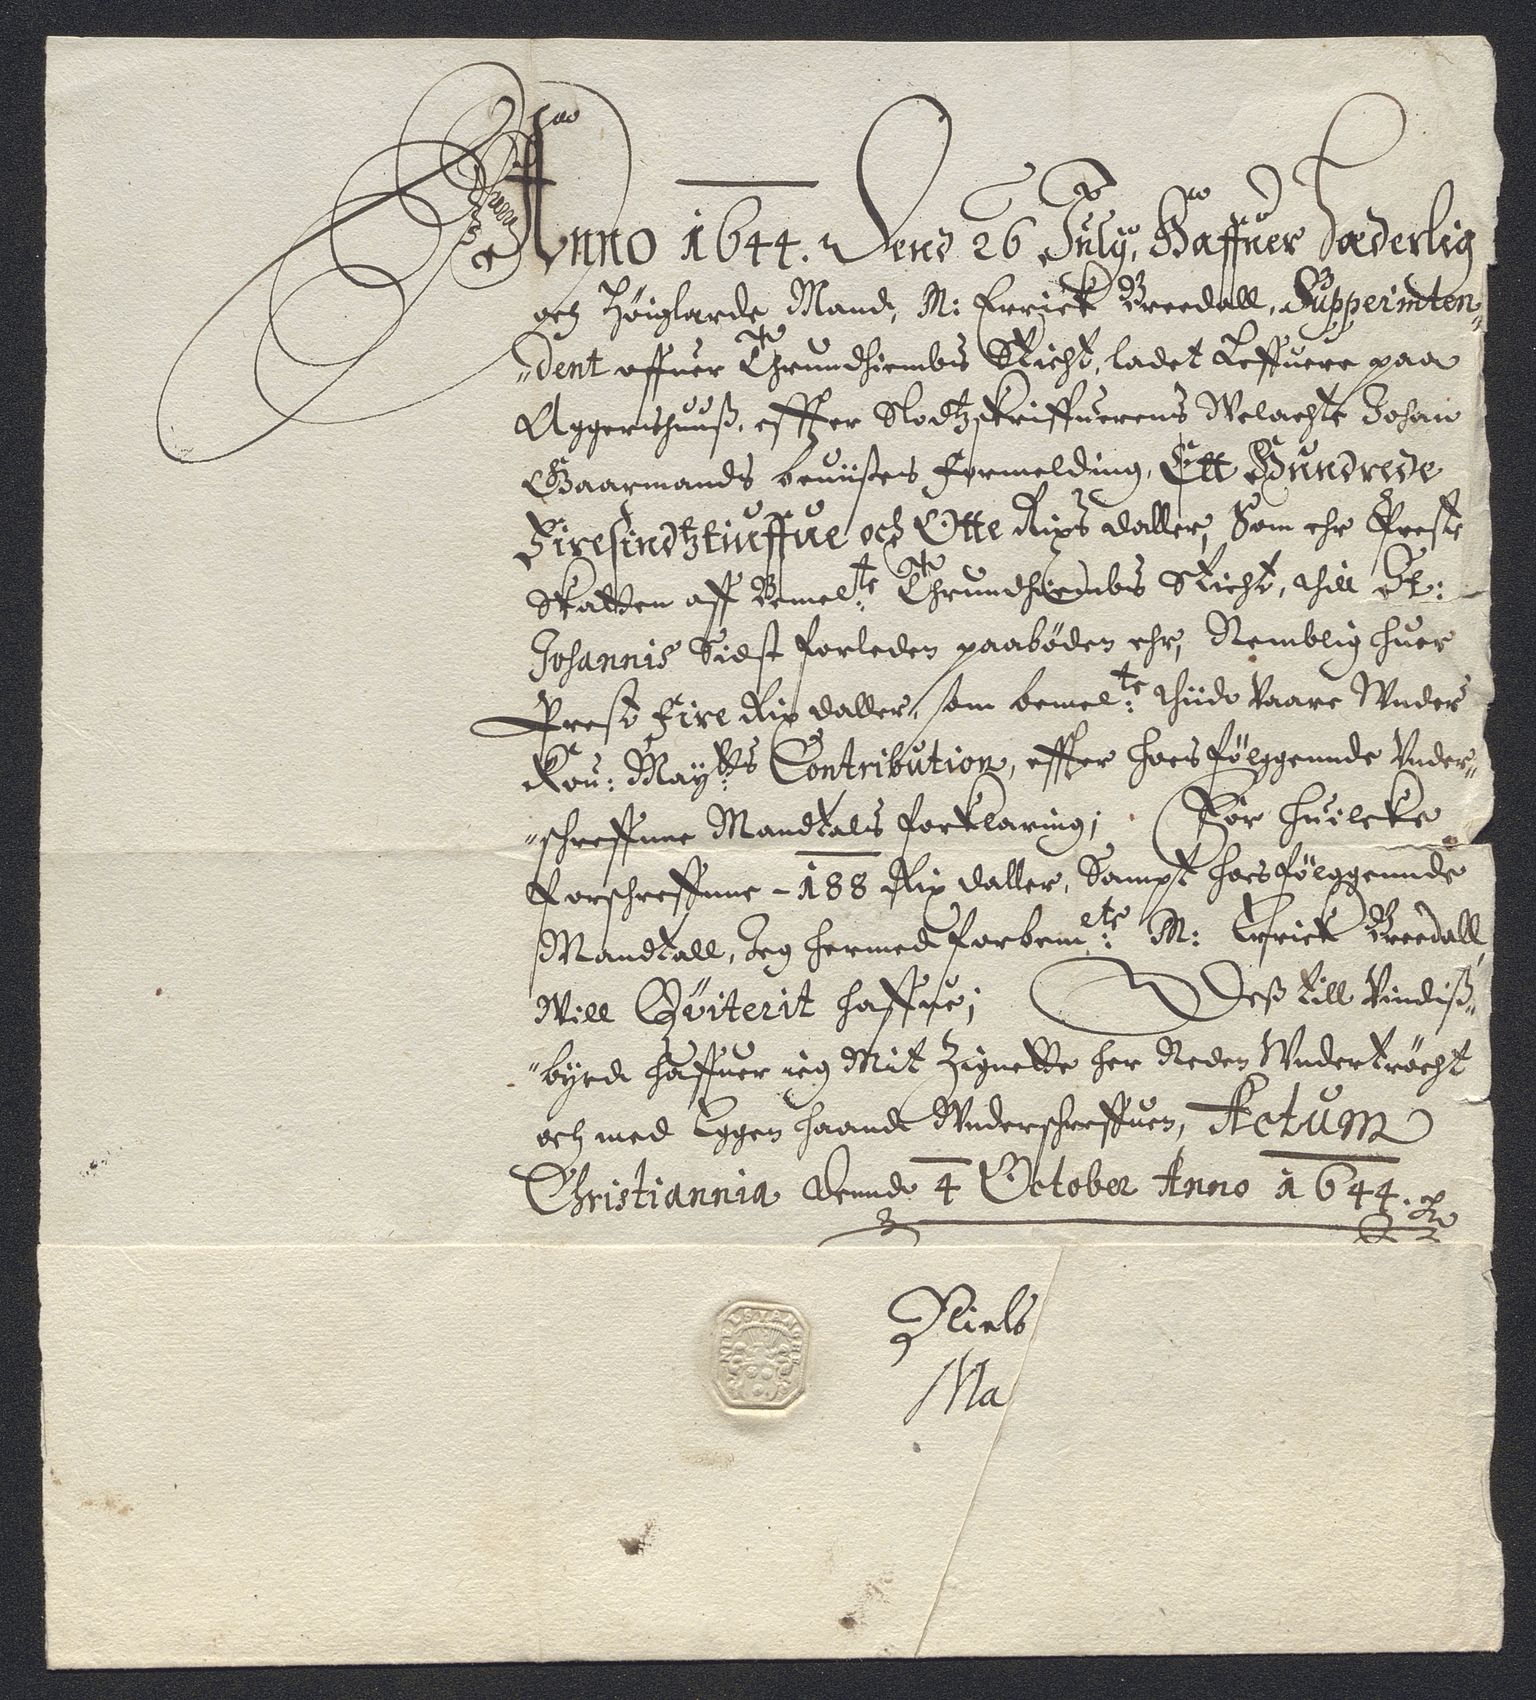 Anno 1644. Dend 26 July, Haffuer Hæderlig
och Høiglærde Mand, M: Errick Breedall, Supperinten„
„dent offuer Thrundhiembs Sticht, ladet Leffuere paa
Aggershuuß, effter Slodtzskriffuerens Welachte Johan
Gaarmands beuiises formelding, Ett Hundrede
Firesindtztiuffue och Otte Rixs daller, Som ehr Preste
Skatten aff Bemel:te Thrundhiembs Sticht, thill St:
Johannis Sidst forleden paabøden ehr, Nemblig huer
Prest Fire Rix daller, som bemel:te thiid Vaare Wnder
Kon: May:tts Contribution, effter hoes følggennde Vnder„
„schreffune Mandtals forklaring; For huilcke
forschreffne - 188 Rix daller, Sampt hoes følggennde
Mandtall, Jeg hermed forbem:elte M: Errick Breedall,
Will Qviterit haffue; Deß till Vindiß„
„byrd haffuer ieg Mit Zignette her Neden Wndertrøcht
och med Eggen haand Wnderschreffuen, Actum
Christiannia dennd 4 October Anno 1644.
Niels
Ma